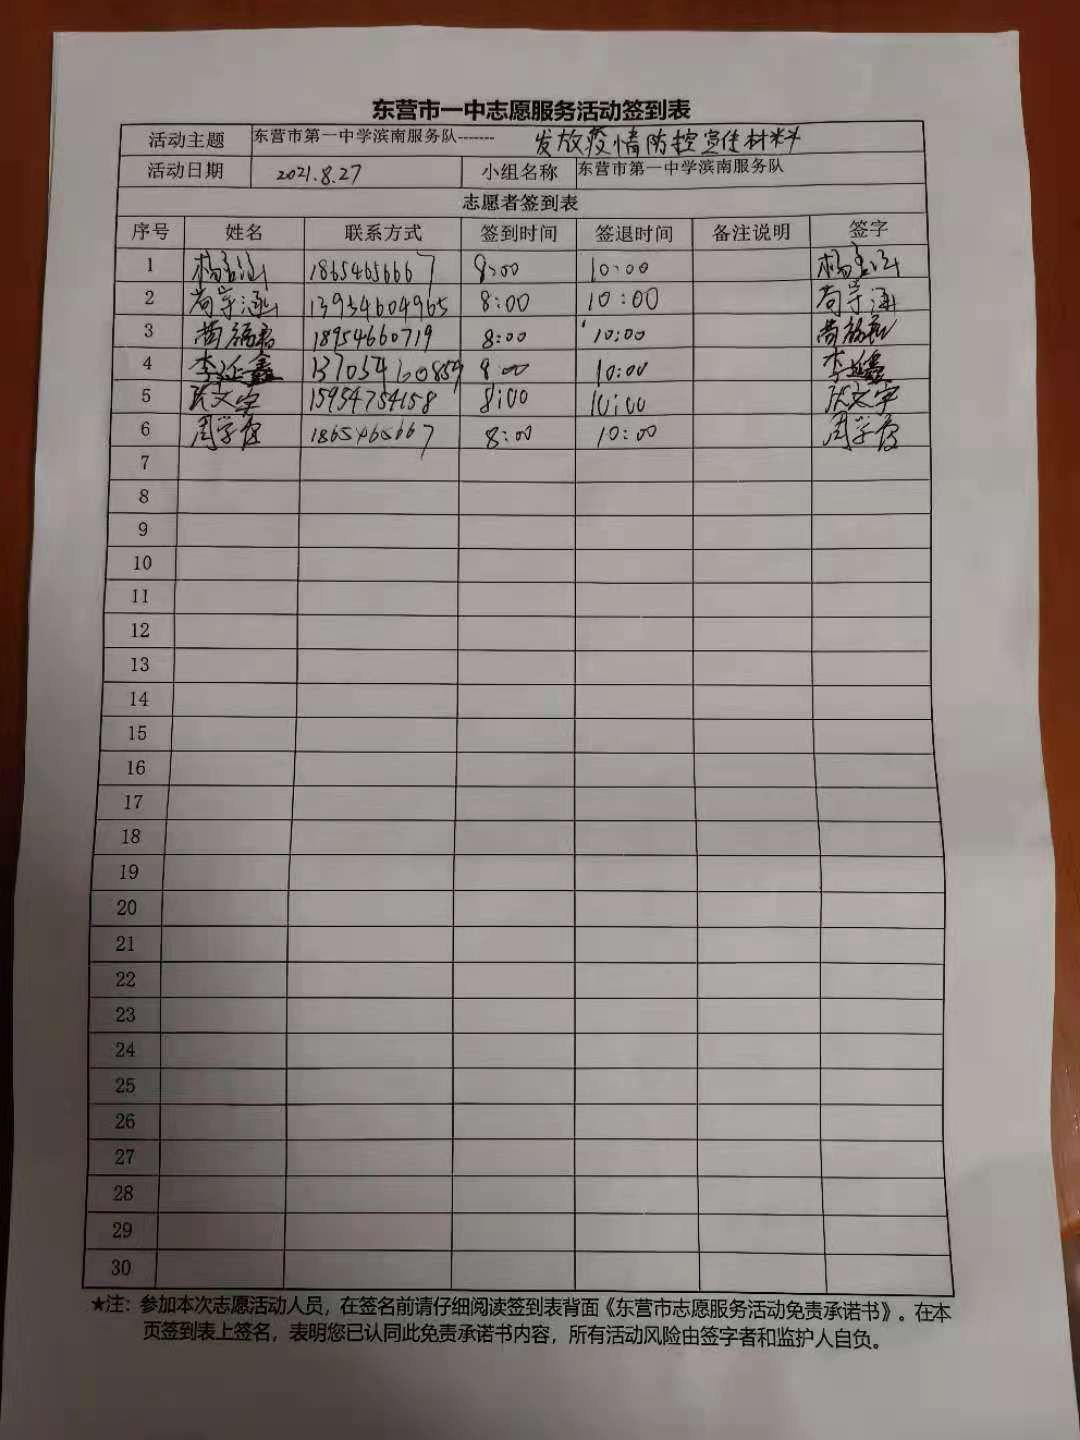 东营市一中志愿服务活动签到表
活动主题 东营市第一中学滨南服务队------- 发放疫情防控宣传材料
活动日期 2021.8.27 小组名称 东营市第一中学滨南服务队
志愿者签到表
序号 姓名 联系方式 签到时间 签退时间 备注说明 签字
1 18654656667 8:00 10:00
2 13934604965 8:00 10:00
3 18954660719 8:00 10:00
4 李延鑫 8:00 10:00 李延鑫
5 张文宇 15954754158 8:00 10:00 张文宇
6 8:00 10:00
7
8
9
10
11
12
13
14
15
16
17
18
19
20
21
22
23
24
25
26
27
28
29
30
★注：参加本次志愿活动人员，在签名前请仔细阅读签到表背面《东营市志愿服务活动免责承诺书》。在本
页签到表上签名，表明您已认同此免责承诺书内容，所有活动风险由签字者和监护人自负。